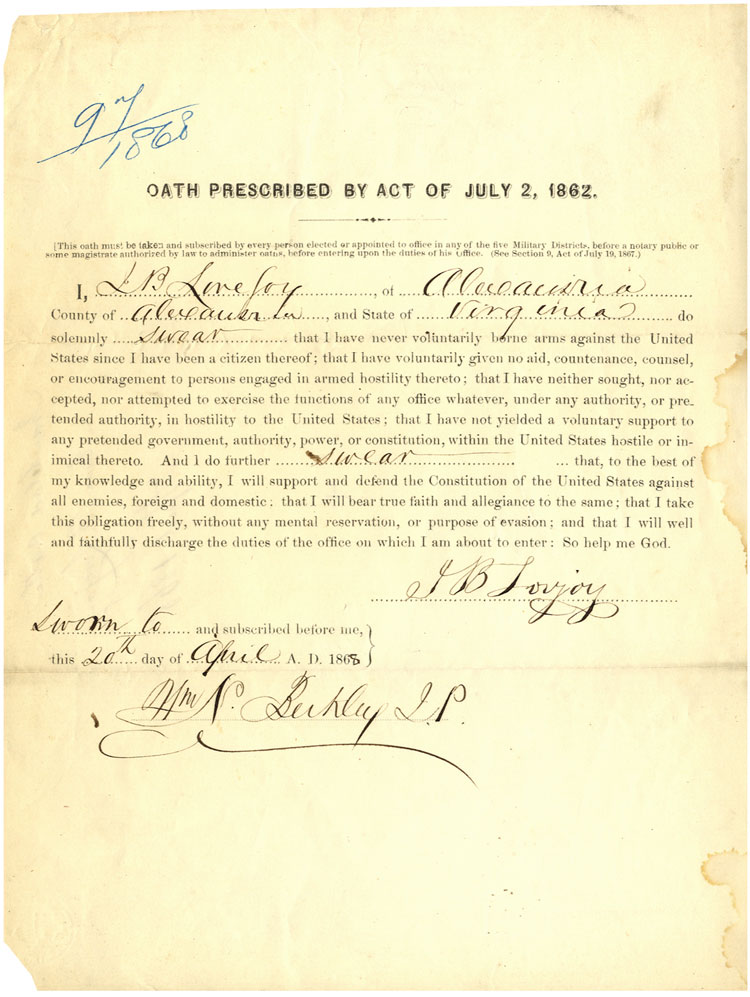 97/1868
OATH PRESCRIBED BY ACT OF JULY 2, 1862.
[This oath must be taken and subscribed by every person elected or appointed to office in any of the five Military Districts, before a notary public or
some magistrate authorized by law to administer oaths, before entering upon the duties of his office. (See Section 9, Act of July 19, 1867.)
I, J B Lovejoy, of Alexandria
County of Alexandria, and State of Virginia do
solemnly swear that I have never voluntarily borne arms against the United
States since I have been a citizen thereof; that I have voluntarily given no aid, countenance, counsel,
or encouragement to persons engaged in armed hostility thereto; that I have neither sought, nor ac-
cepted, nor attempted to exercise the functions of any office whatever, under any authority, or pre-
tended authority, in hostility to the United States; that I have not yielded a voluntary support to
any pretended government, authority, power, or constitution, within the United States hostile or in-
imical thereto. And I do further swear that, to the best of
my knowledge and ability, I will support and defend the Constitution of the United States against
all enemies, foreign and domestic: that I will bear true faith and allegiance to the same; that I take
this obligation freely, without any mental reservation, or purpose of evasion; and that I will well
and faithfully discharge the duties of the office on which I am about to enter: So help me God.
J B Lovejoy
Sworn to and subscribed before me,
this 20th day of April A. D. 1868
Wm N. Berkley J.P.